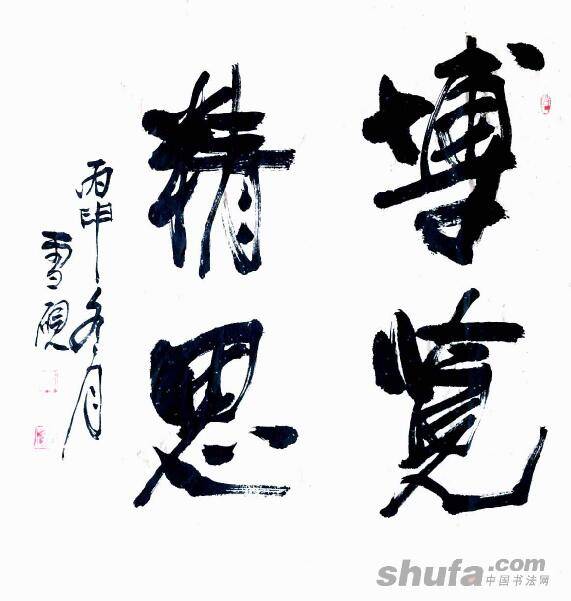 博览
精思
丙申冬月
雪砚
shufa.com
中国书法网